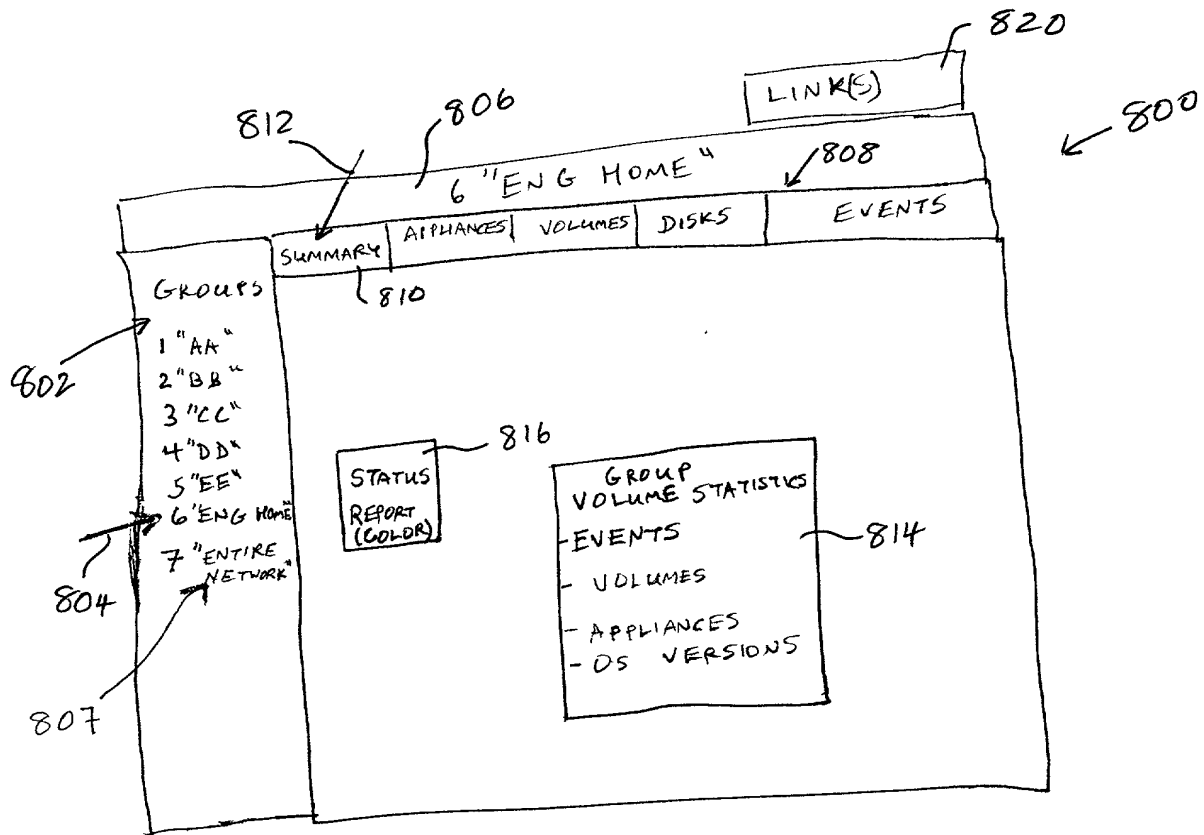 820
LINK(S)
812
806
800
6 "ENG HOME"
808
SUMMARY
APPLIANCES
VOLUMES
DISKS
EVENTS
810
GROUPS
802
1 "AA"
2 "BB"
3 "CC"
4 "DD"
5 "EE"
6 "ENG HOME"
7 "ENTIRE
NETWORK"
804
807
816
STATUS
REPORT
(COLOR)
GROUP
VOLUME STATISTICS
- EVENTS
- VOLUMES
- APPLIANCES
- OS VERSIONS
814